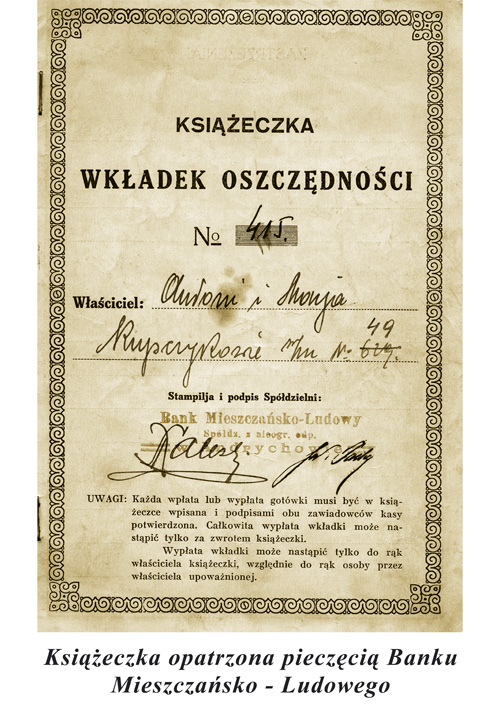 KSIĄŻECZKA
WKŁADEK OSZCZĘDNOŚCI
No 415.
Właściciel: Antoni i Marya
49
Stampilja i podpis Spółdzielni:
Bank Mieszczańsko-Ludowy
Spółdz. z nieogr. odp.
w Andrychowie
UWAGI: Każda wpłata lub wypłata gotówki musi być w ksią-
żeczce wpisana i podpisami obu zawiadowców kasy
potwierdzona. Całkowita wypłata wkładki może na-
stąpić tylko za zwrotem książeczki.
Wypłata wkładki może nastąpić tylko do rąk
właściciela książeczki, względnie do rąk osoby przez
właściciela upoważnionej.
Książeczka opatrzona pieczęcią Banku
Mieszczańsko - Ludowego